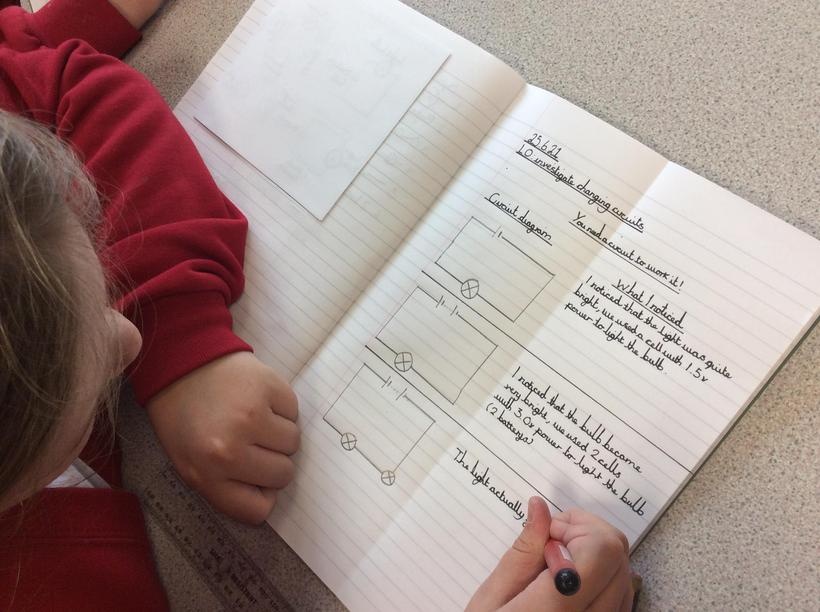 25.6.21
LO investigate changing circuits
You need a circuit to work it!
Circuit diagram
What I noticed
I noticed that the light was quite
bright, we used a cell with 1.5v
power to light the bulb.
I noticed that the bulb became
very bright, we used 2 cells
with 3.0v power to light the bulb
(2 batterys)
The light actually